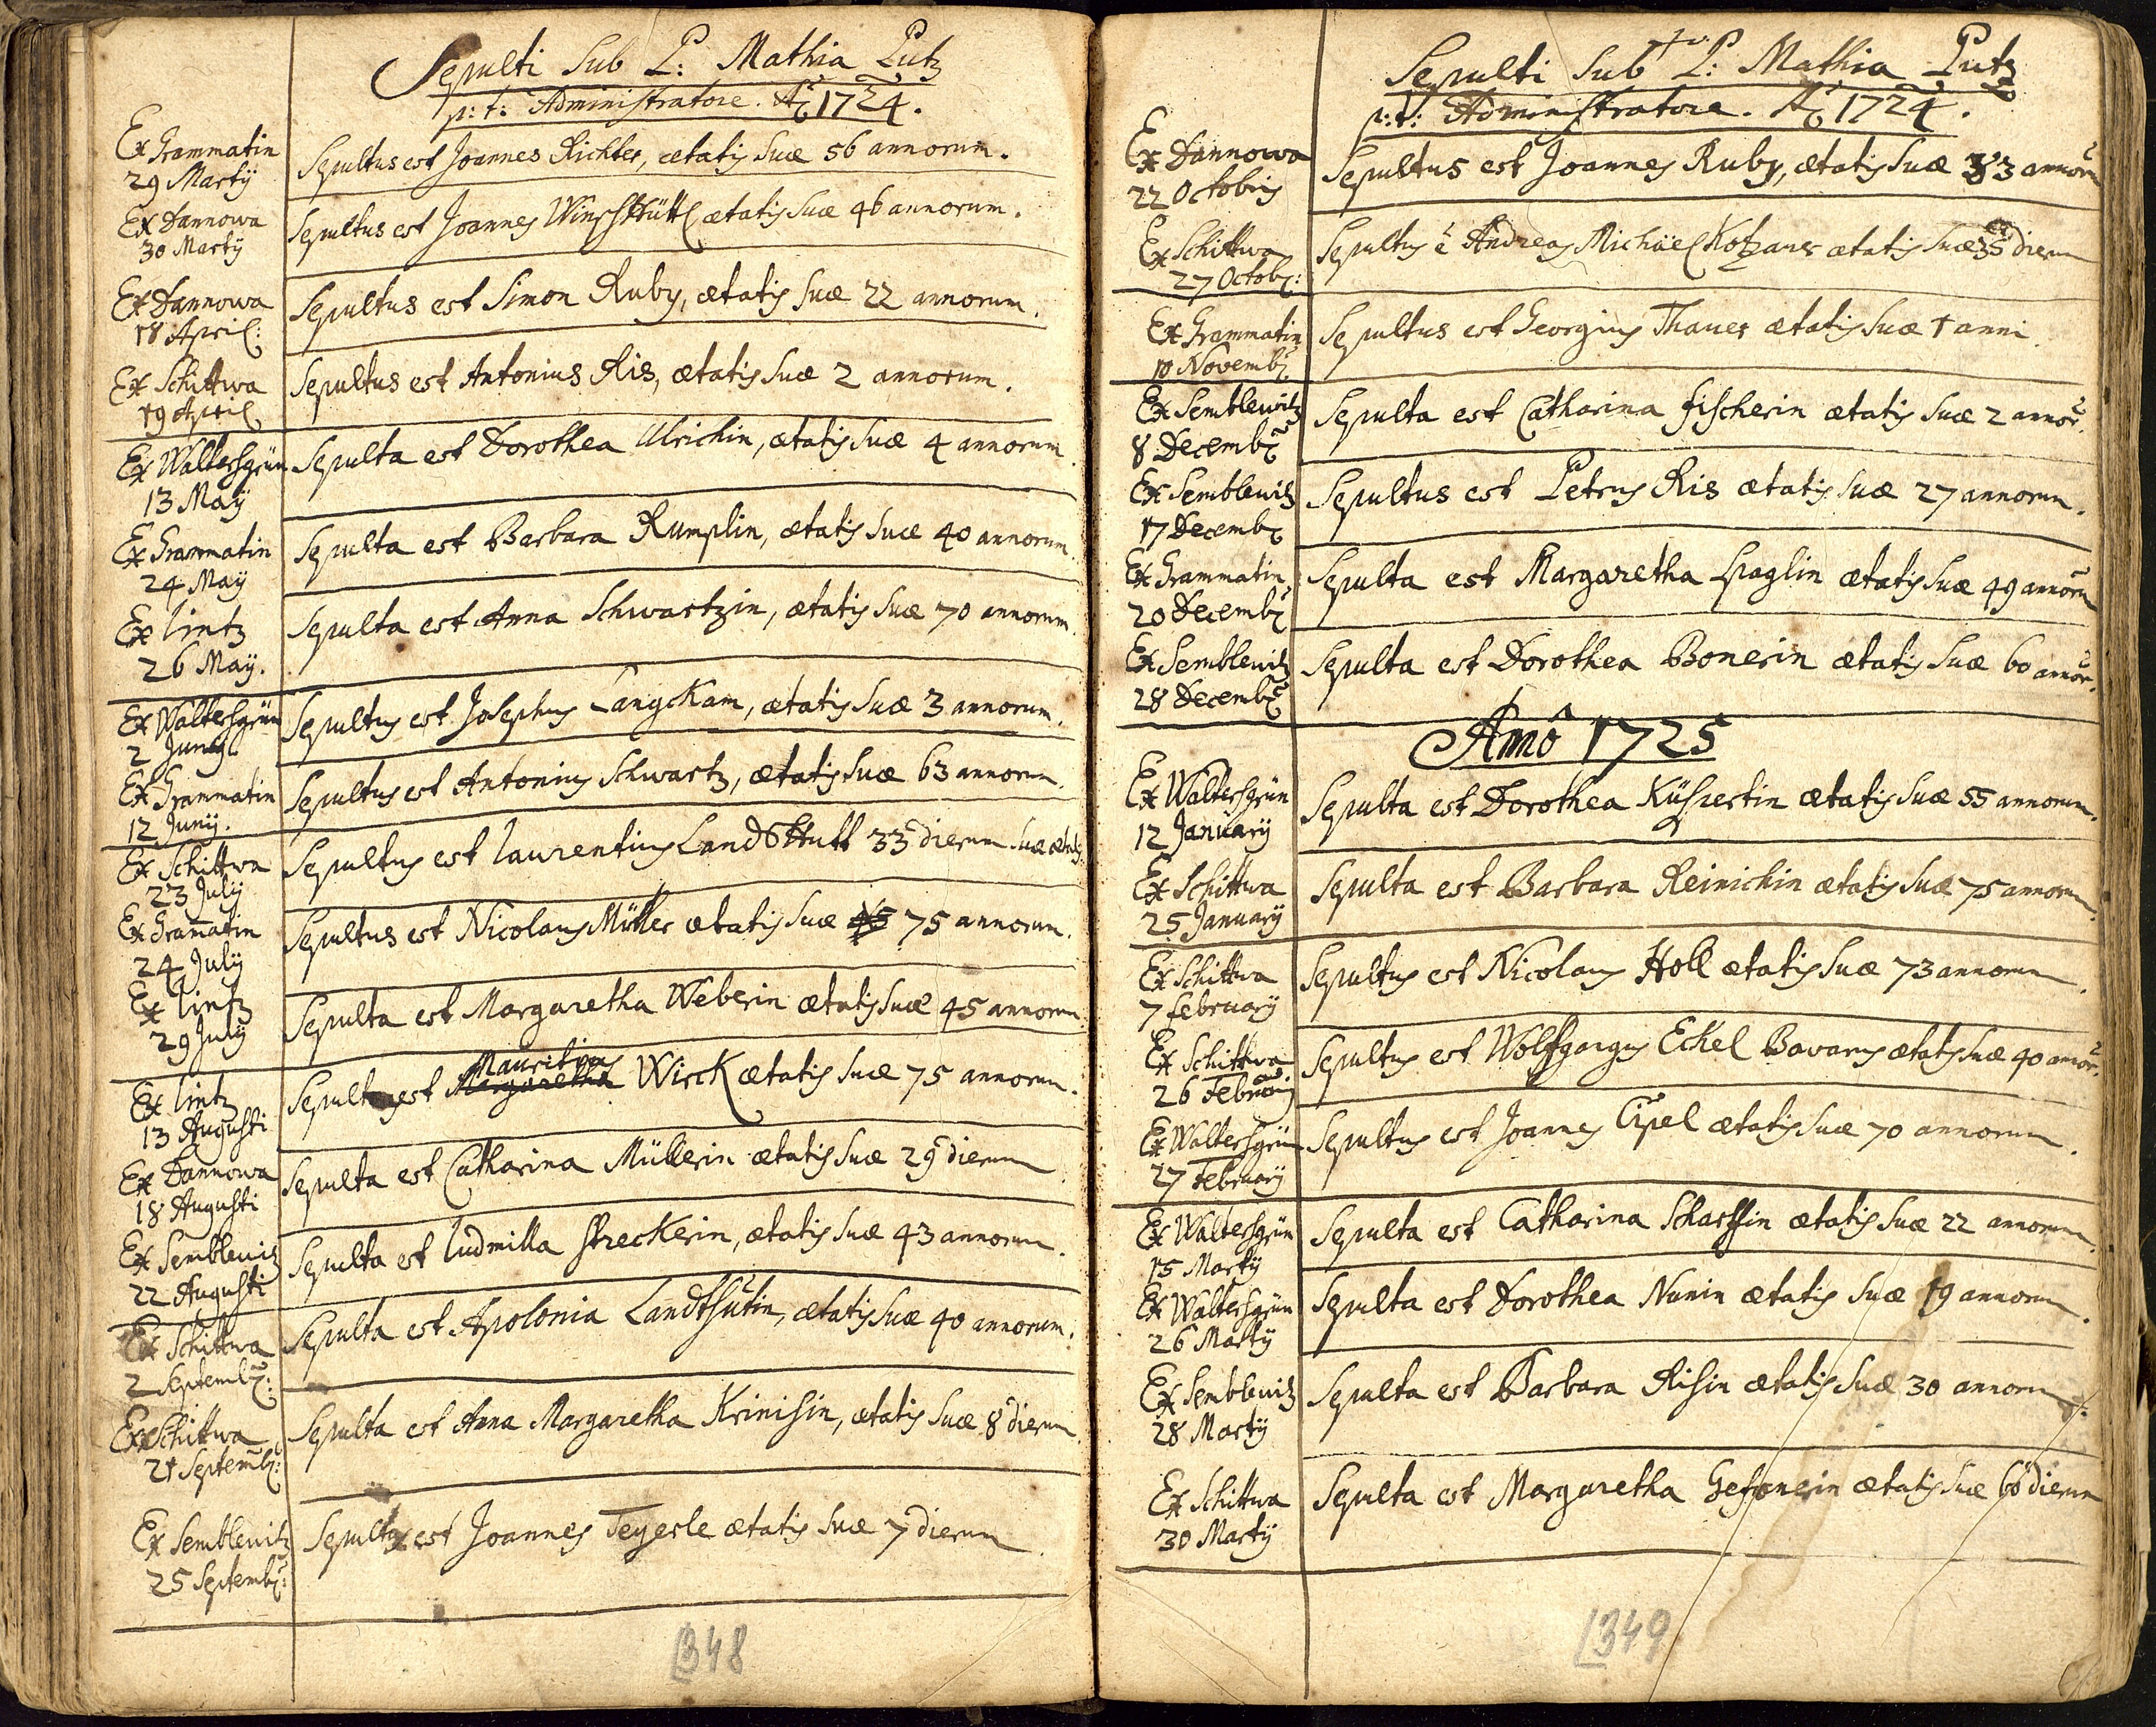 Sepulti Sub P: Mathia Putz
p: t: Administratore. Aõ 1724.
Ex Grammatin
29 Martÿ
Sepultus est Joannes Richter, ætatis suæ 56 annorum.
Ex Dannowa
30 Martÿ
Sepultus est Joannes ætatis suæ 46 annorum.
Ex Dannowa
18 April:
Sepultus est Simon Ruby, ætatis suæ 22 annorum.
Ex Schittwa
19 April
Sepultus est Antonius Ris, ætatis suæ 2 annorum.
Ex Waltersgrün
13 Maÿ
Sepulta est Dorothea Ulrichin, ætatis suæ 4 annorum.
Ex Grammatin
24 Maÿ
Sepulta est Barbara Rumplin, ætatis suæ 40 annorum.
Ex lintz
26 Maÿ.
Sepulta est Anna Schwartzin, ætatis suæ 70 annorum.
Ex Waltersgrün
2 Junÿ
Sepultus est Josephus Langckam, ætatis suæ 3 annorum.
Ex Grammatin
12 Junÿ.
Sepultus est Antonius Schwartz, ætatis suæ 63 annorum.
Ex Schittwa
23 Julÿ
Sepultus est laurentius LandsHutt 33 dierum suæ ætatis
Ex Gram̄atin
24 Julÿ
Sepultus est Nicolaus Müller ætatis suæ 75 annorum.
Ex lintz
29 Julÿ
Sepulta est Margaretha Weberin ætatis suæ 45 annorum.
Ex lintz
13 Augusti
Sepultus est Mauritius Wirck ætatis suæ 75 annorum.
Ex Dannowa
18 Augusti
Sepulta est Catharina Müllerin ætatis suæ 29 dierum
Ex Semblewitz
22 Augusti
Sepulta est ludmilla streckerin, ætatis suæ 43 annorum.
Ex Schittwa
2 Septemb:
Sepulta est Apolonia Landtshutin, ætatis suæ 40 annorum.
Ex Schittwa
21 Septemb:
Sepulta est Anna Margaretha Krinisin, ætatis suæ 8 dierum.
Ex Semblewitz
25 Septemb:
Sepultus est Joannes Teyerle ætatis suæ 7 dierum
348
Sepulti Sub P: Mathia Putz
p: t: Administratore. Aõ 1724.
Ex Dannowa
22 Octobris
Sepultus est Joannes Ruby, ætatis suæ 33 annorū
Ex Schittwa
27 Octob:
Sepultus ē Andreas Michäel Kotzaner ætatis suæ 35 dierum
Ex Grammatin
10 Novemb:
Sepultus est Georgius Thaner ætatis suæ 1 anni.
Ex Semblewitz
8 Decemb:
Sepulta est Catharina fischerin ætatis suæ 2 annor.
Ex Semblewitz
17 Decemb:
Sepultus est Petrus Ris ætatis suæ 27 annorum.
Ex Grammatin
20 Decemb:
Sepulta est Margaretha ætatis suæ 49 annorū
Ex Semblewitz
28 Decemb:
Sepulta est Dorothea Bonerin ætatis suæ 60 annor.
Añô 1725
Ex Waltersgrün
12 Januarÿ
Sepulta est Dorothea ætatis suæ 55 annorum.
Ex Schittwa
25 Januarÿ
Sepulta est Barbara Reinichin ætatis suæ 75 annorum.
Ex Schittwa
7 februarÿ
Sepultus est Nicolaus Holl ætatis suæ 73 annorum.
Ex Schittwa
26 Februarÿ
Sepultus est Wolfgangus Eckel Bavarus ætatis suæ 40 annor.
Ex Waltersgrün
27 Februarÿ
Sepultus est Joannes Cipel ætatis suæ 70 annorum.
Ex Waltersgrün
15 Martÿ
Sepulta est Catharina Scharffin ætatis suæ 22 annorum.
Ex Waltersgrün
26 Martÿ
Sepulta est Dorothea Nunin ætatis suæ 19 annorum.
Ex Semblewitz
28 Martÿ
Sepulta est Barbara Risin ætatis suæ 30 annorum.
Ex Schittwa
30 Martÿ
Sepulta est Margaretha ætatis suæ 60 dierum
349